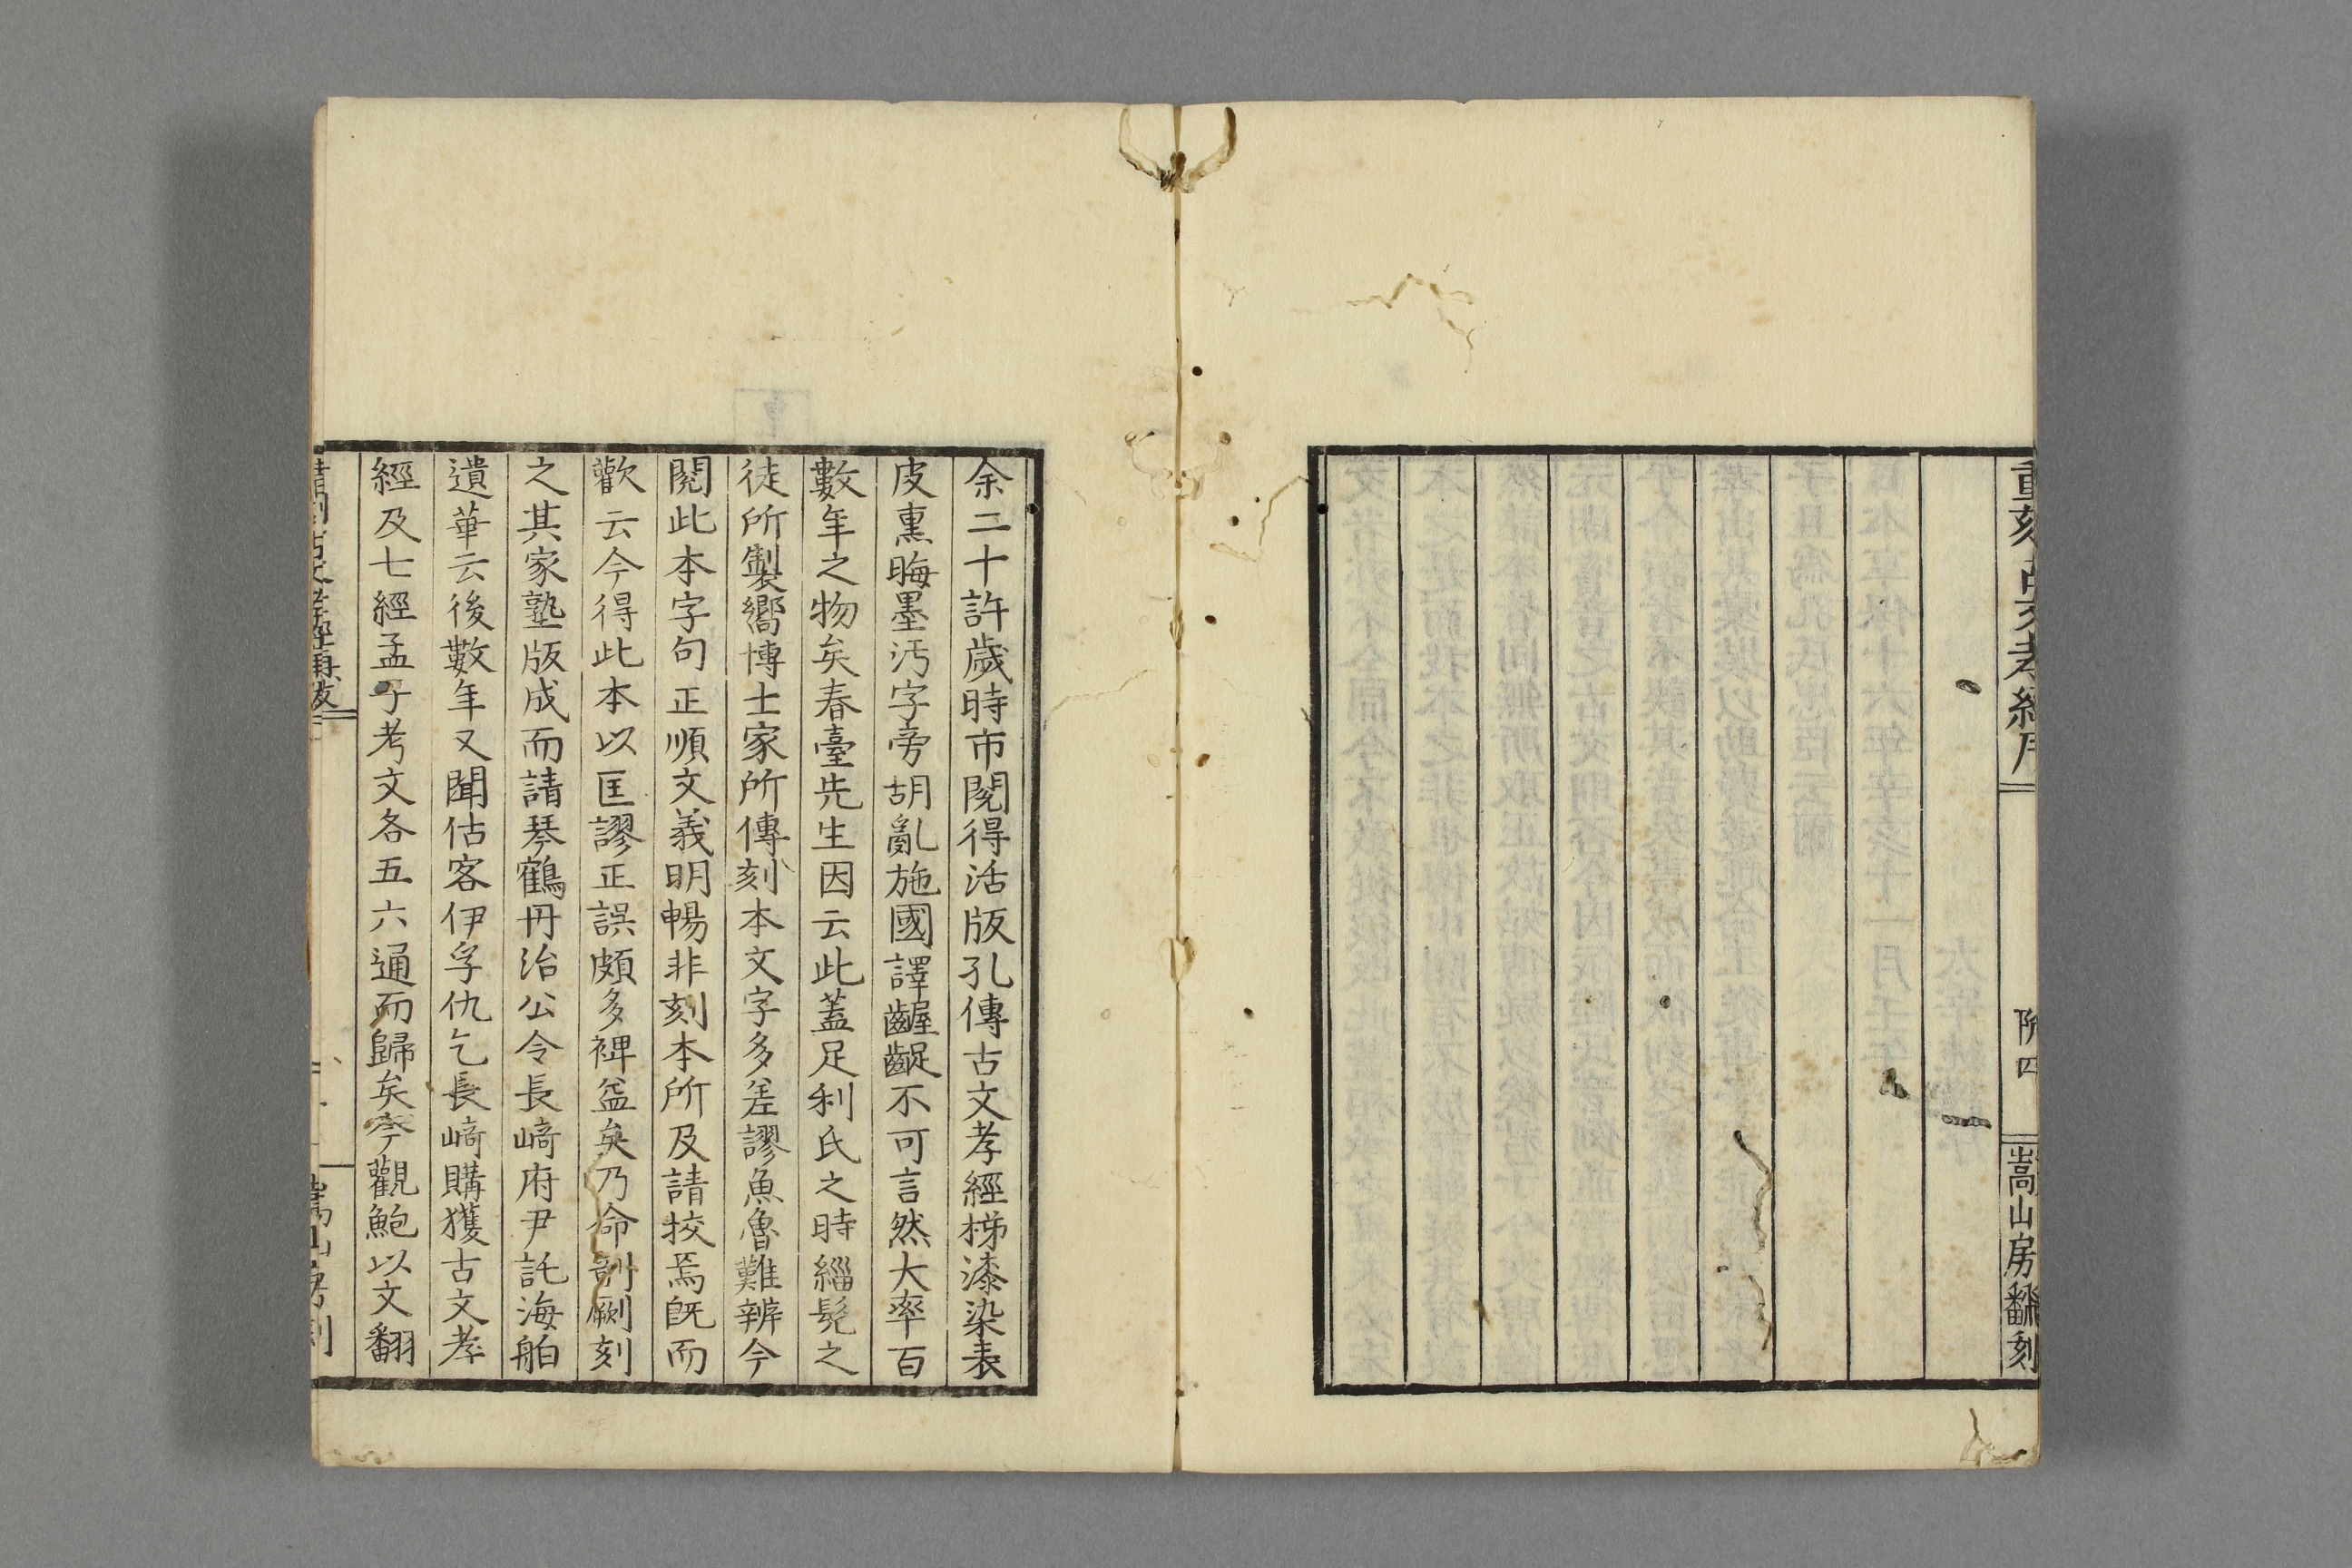 重刻古文孝經序
附四
嵩山房翻刻
余二十許歲時市閱得活版孔傳古文孝經梯漆染表
皮熏晦墨汚字旁胡亂施國譯齷齪不可言然大率百
數年之物矣春臺先生因云此蓋足利氏之時緇髡之
徒所製嚮博士家所傳刻本文字多差謬魚魯難辨今
閱此本字句正順文義明暢非刻本所及請挍焉既而
歡云今得此本以匡謬正誤頗多裨益矣乃命剞劂刻
之其家塾版成而請琴鶴丹治公令長﨑府尹託海舶
遺華云後數年又聞估客伊孚仇乞長﨑購獲古文孝
經及七經孟子考文各五六通而歸矣今觀鮑以文翻